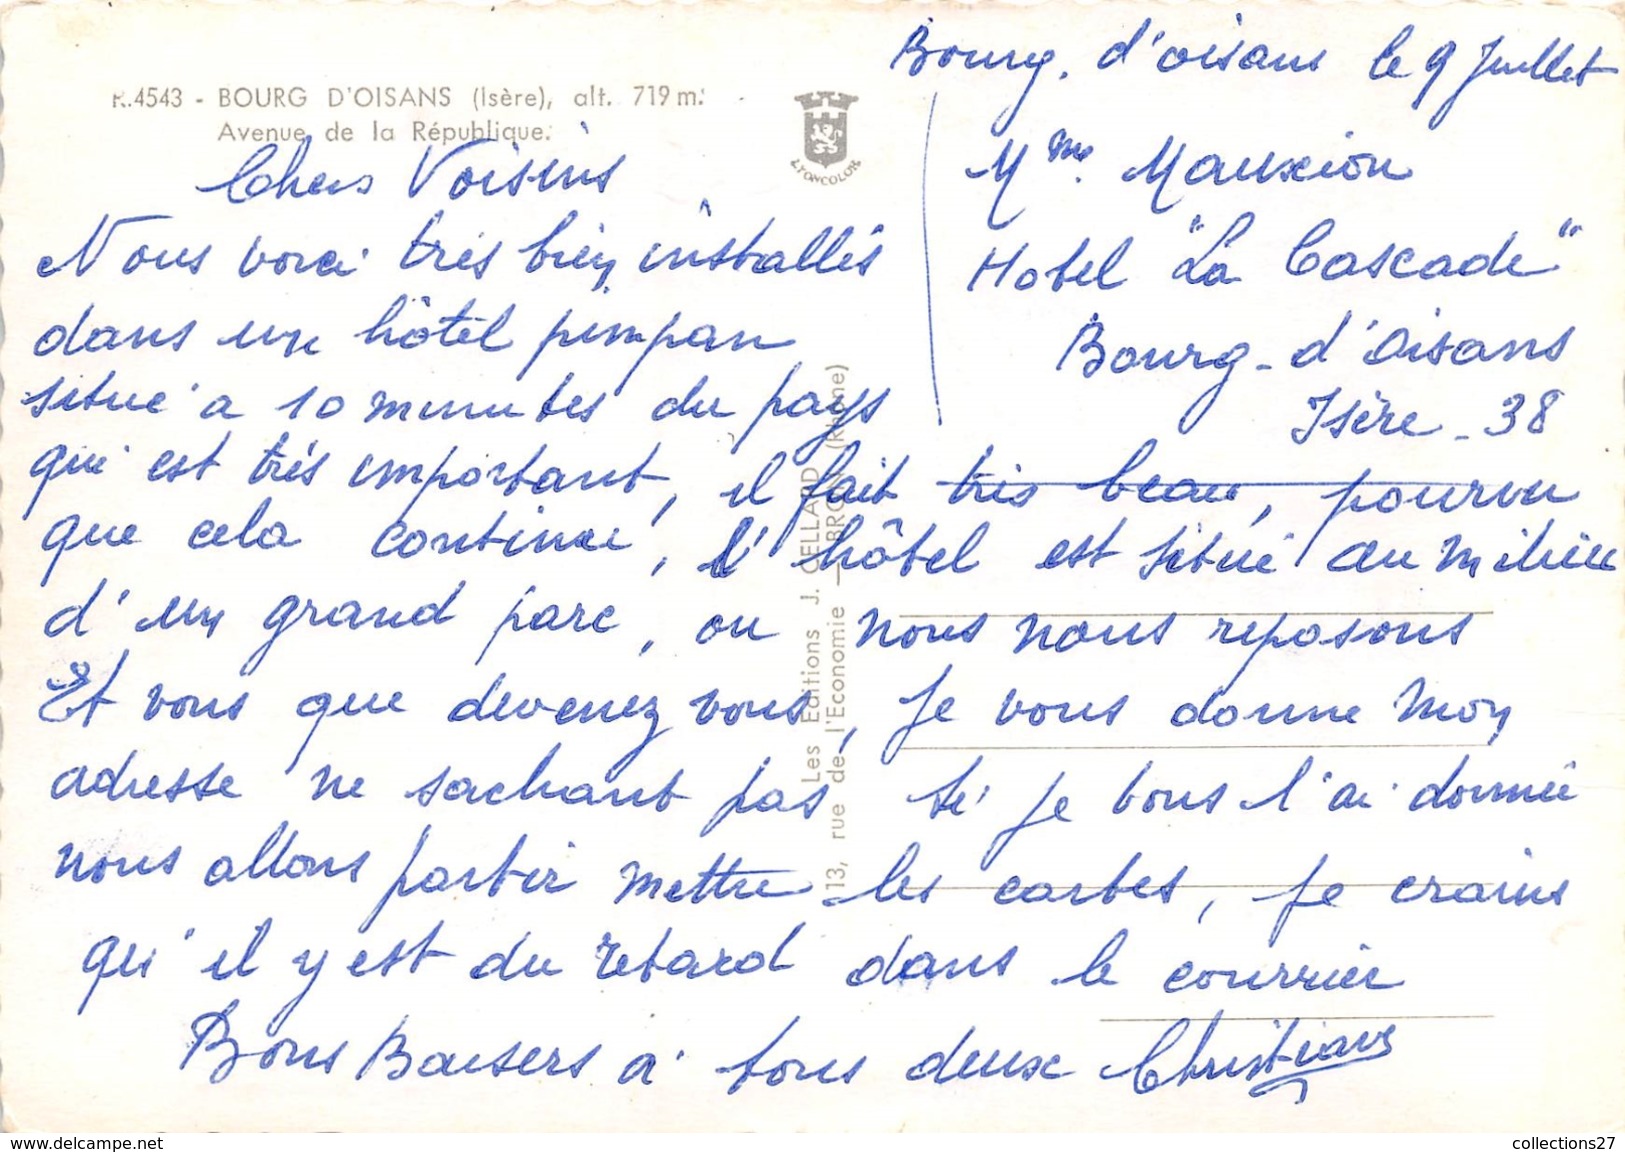 R.4543 - BOURG D'OISANS (Isère), alt. 719 m.
Avenue de la République.
LYONCOLOR
Bourg. d'oisans le 9 Juillet
Mme. Mauxion
Hotel "La Cascade"
Bourg-d'Oisans
Isère-38
Chers Voisins
Nous voici très bien installés
dans un hôtel pimpan
situé a 10 minutes du pays
qui est très important, il fait très beau, pourvu
que cela continue, l'hôtel est situé au milieu
d'un grand parc, ou nous nous reposons
Et vous que devenez vous, Je vous donne mon
adresse ne sachant pas si je vous l'ai donnée
nous allons partir mettre les cartes, Je crains
qu'il y est du retard dans le courrier
Bons Baisers a tous deux Christiane
Les Editions J. CELLARD
13, rue de l'Economie - BRON (Rhône)
www.delcampe.net
collections27